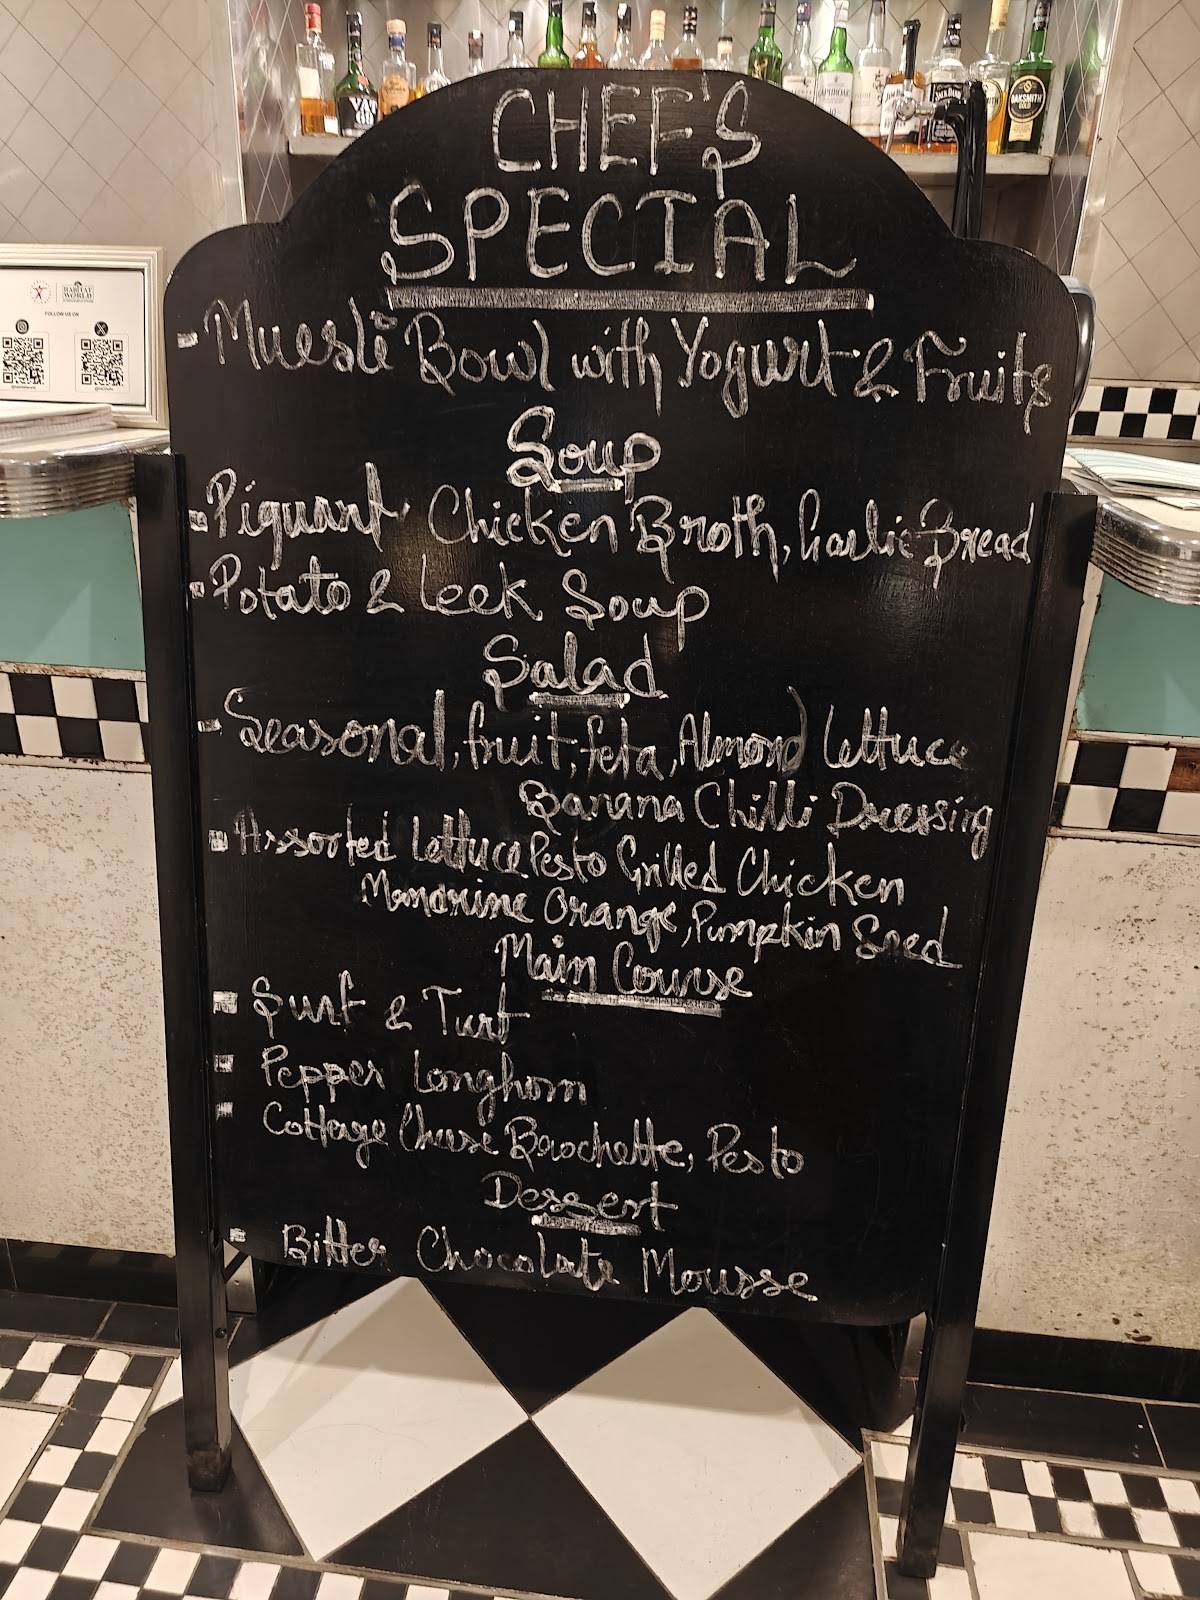 CHEF'S
SPECIAL
- Muesli Bowl with Yogurt & Fruits
Soup
- Piquant Chicken Broth, Garlic Bread
- Potato & Leek Soup
Salad
- Seasonal, fruit, feta, Almond Lettuce
Banana Chilli Dressing
- Assorted Lettuce Pesto Grilled Chicken
Mandrine Orange, Pumpkin Seed
Main Course
- Surf & Turf
- Pepper Longhorn
- Cottage Cheese Brochette, Pesto
Dessert
- Bitter Chocolate Mousse
HABITAT
WORLD
FOLLOW US ON
VAT
69
OAKSMITH
GOLD